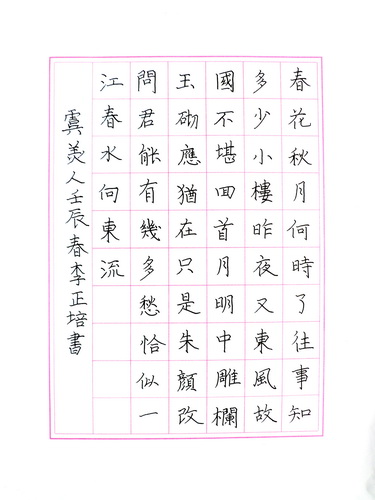 春花秋月何時了往事知
多少小樓昨夜又東風故
國不堪回首月明中雕欄
玉砌應猶在只是朱顏改
問君能有幾多愁恰似一
江春水向東流
虞美人壬辰春李正培書